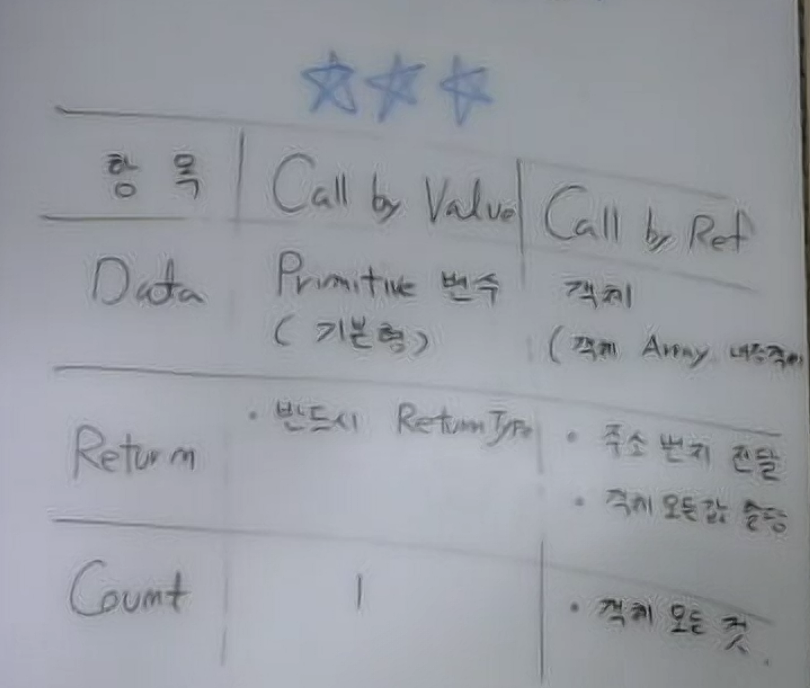 항 목 Call by Value Call by Ref
Data Primitive 변수 객체
(기본형) (객체 Array, 내장객체
Return · 반드시 Return Type · 주소 번지 전달
· 객체 모든값
Count 1 · 객체 모든 것.